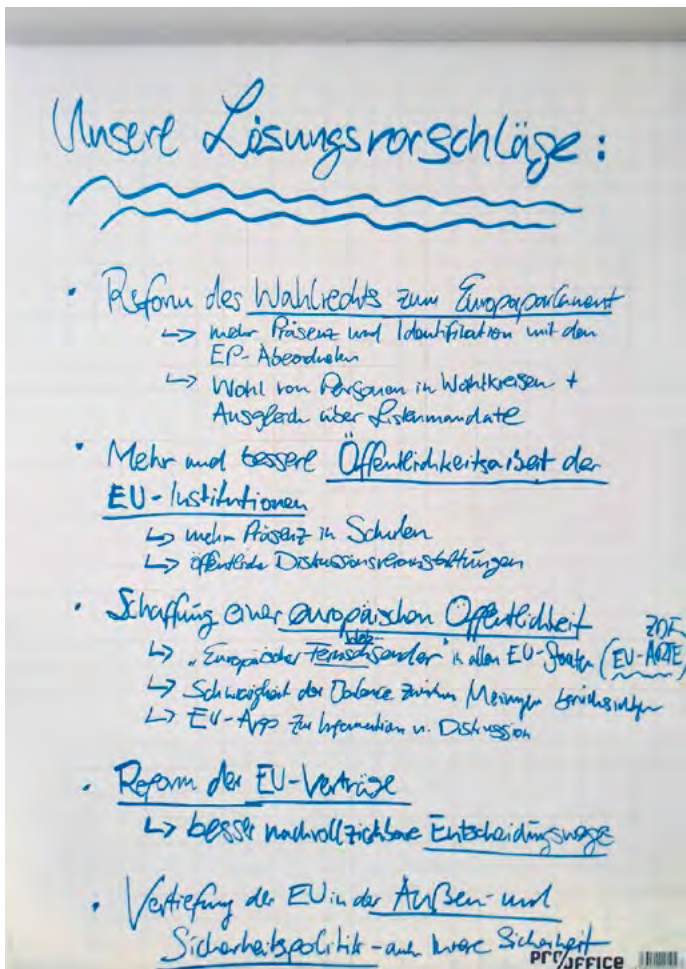 Unsere Lösungsvorschläge:
• Reform des Wahlrechts zum Europaparlament
↳ mehr Präsenz und Identifikation mit den
EP-Abeordneten
↳ Wahl von Personen in Wahlkreisen +
Ausgleich über Listenmandate
• Mehr und bessere Öffentlichkeitsarbeit der
EU-Institutionen
↳ mehr Präsenz in Schulen
↳ öffentliche Diskussionsveranstaltungen
• Schaffung einer europäischen Öffentlichkeit
ZDF
↳ „Europäischer Fernsehsender" in allen EU-Staaten (EU-ARTE)
↳ Schwierigkeit der Balance zwischen Meinungen berücksichtigen
↳ EU-App zur Information u. Diskussion
• Reform der EU-Verträge
↳ besser nachvollziehbare Entscheidungswege
• Vertiefung der EU in der Außen- und
Sicherheitspolitik - auch Innere Sicherheit
PRO/OFFICE